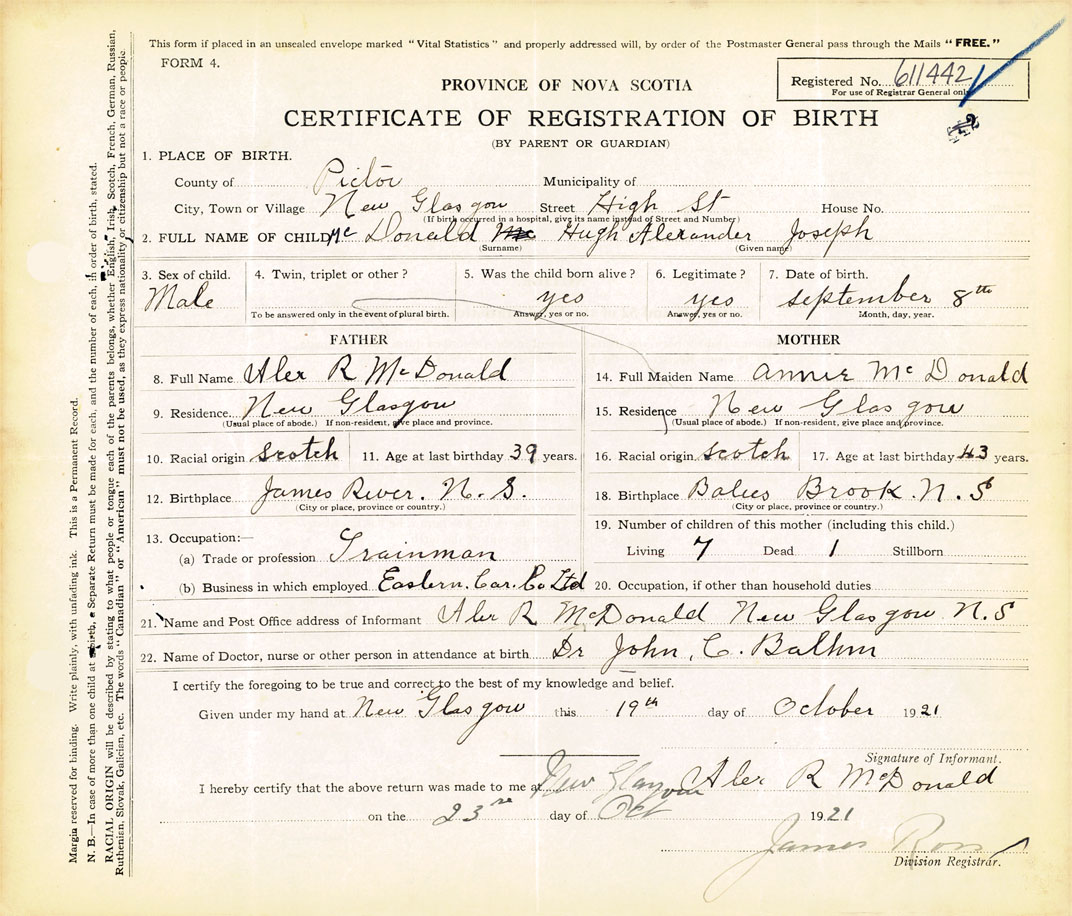 This form if placed in an unsealed envelope marked "Vital Statistics" and properly addressed will, by order of the Postmaster General pass through the Mails "FREE."
FORM 4.
Registered No. 611442
For use of Registrar General only
PROVINCE OF NOVA SCOTIA
CERTIFICATE OF REGISTRATION OF BIRTH
(BY PARENT OR GUARDIAN)
1. PLACE OF BIRTH.
County of Pictou Municipality of
City, Town or Village New Glasgow Street High St House No.
(If birth occurred in a hospital, give its name instead of Street and Number)
2. FULL NAME OF CHILD Mc Donald Hugh Alexander Joseph
(Surname) (Given name)
3. Sex of child. 4. Twin, triplet or other? 5. Was the child born alive? 6. Legitimate? 7. Date of birth.
Male yes yes september 8th
To be answered only in the event of plural birth. Answer, yes or no. Answer, yes or no. Month, day, year.
FATHER MOTHER
8. Full Name Alex R McDonald 14. Full Maiden Name Annie McDonald
9. Residence New Glasgow 15. Residence New Glasgow
(Usual place of abode.) If non-resident, give place and province. (Usual place of abode.) If non-resident, give place and province.
10. Racial origin scotch 11. Age at last birthday 39 years. 16. Racial origin scotch 17. Age at last birthday 43 years.
12. Birthplace James River. N. S. 18. Birthplace Brook. N. S
(City or place, province or country.) (City or place, province or country.)
19. Number of children of this mother (including this child.)
13. Occupation:—
(a) Trade or profession Trainman Living 7 Dead 1 Stillborn
(b) Business in which employed Eastern. Car. Co Ltd 20. Occupation, if other than household duties
21. Name and Post Office address of Informant Alex R McDonald New Glasgow N.S
22. Name of Doctor, nurse or other person in attendance at birth Dr John, C.
I certify the foregoing to be true and correct to the best of my knowledge and belief.
Given under my hand at New Glasgow this 19th day of October 1921
Signature of Informant.
Alex R McDonald
I hereby certify that the above return was made to me at New Glasgow
on the 23rd day of Oct 1921
James Ross
Division Registrar.
Margin reserved for binding. Write plainly, with unfading ink. This is a Permanent Record.
N. B.—In case of more than one child at a birth, a Separate Return must be made for each, and the number of each, in order of birth, stated.
RACIAL ORIGIN will be described by stating to what people or tongue each of the parents belongs, whether English, Irish, Scotch, French, German, Russian,
Ruthenian, Slovak, Galician, etc. The words "Canadian" or "American" must not be used, as they express nationality or citizenship but not a race or people.